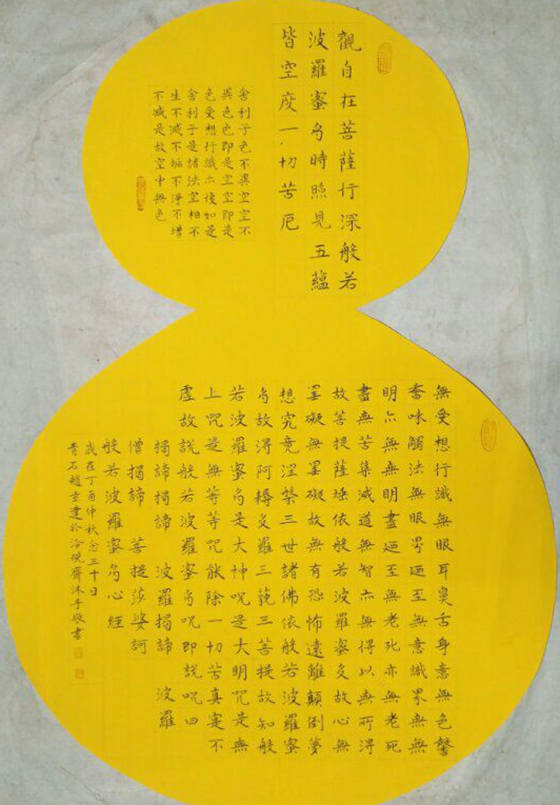 觀自在菩薩行深般若
波羅蜜多時照見五蘊
皆空度一切苦厄
舍利子色不異空空不
異色色即是空空即是
色受想行識亦復如是
舍利子是諸法空相不
生不滅不垢不淨不增
不減是故空中無色
無受想行識無眼耳鼻舌身意無色聲
香味觸法無眼界廼至無意識界無無
明亦無無明盡廼至無老死亦無老死
盡無苦集滅道無智亦無得以無所得
故菩提薩埵依般若波羅蜜多故心無
罣礙無罣礙故無有恐怖遠離顛倒夢
想究竟涅槃三世諸佛依般若波羅蜜
多故得阿耨多羅三藐三菩提故知般
若波羅蜜多是大神咒是大明咒是無
上咒是無等等咒能除一切苦真實不
虛故說般若波羅蜜多咒即說咒曰
揭諦揭諦 波羅揭諦 波羅
僧揭諦 菩提莎婆訶
般若波羅蜜多心經
歲在丁酉仲秋念三十日
青石趙 於 硯齋沐手敬書